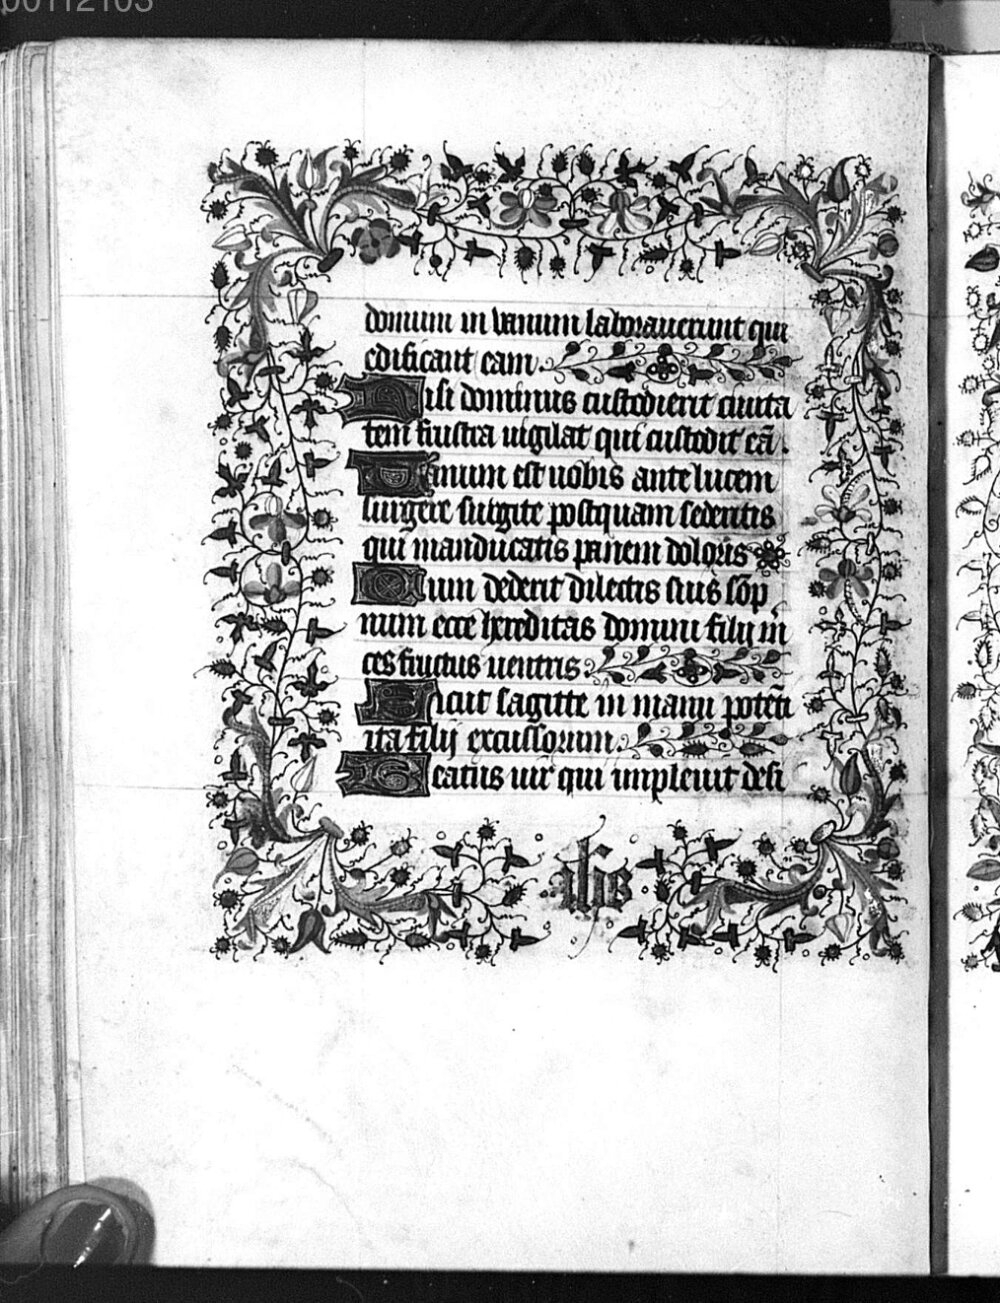 b0112103
domum in vanum laborauerunt qui
edificant eam.
Nisi dominus custodierit ciuita
tem frustra uigilat qui custodit eā.
Uanum est uobis ante lucem
surgere surgite postquam sederitis
qui manducatis panem doloris
Cum dederit dilectis suis sōp
num ecce hereditas domini filij m
ces fructus uentris.
Sicut sagitte in manu potēti
ita filij excussorum.
Beatus uir qui impleuit desi
ihs